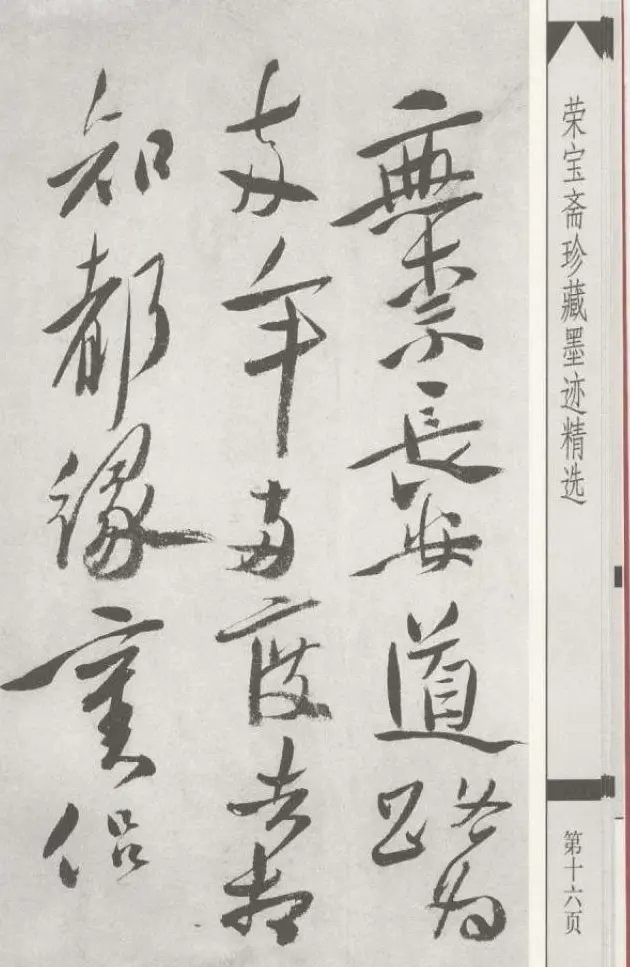 無柰長安道路為
年两度去相
知都緣侶
荣宝斋珍藏墨迹精选
第十六页